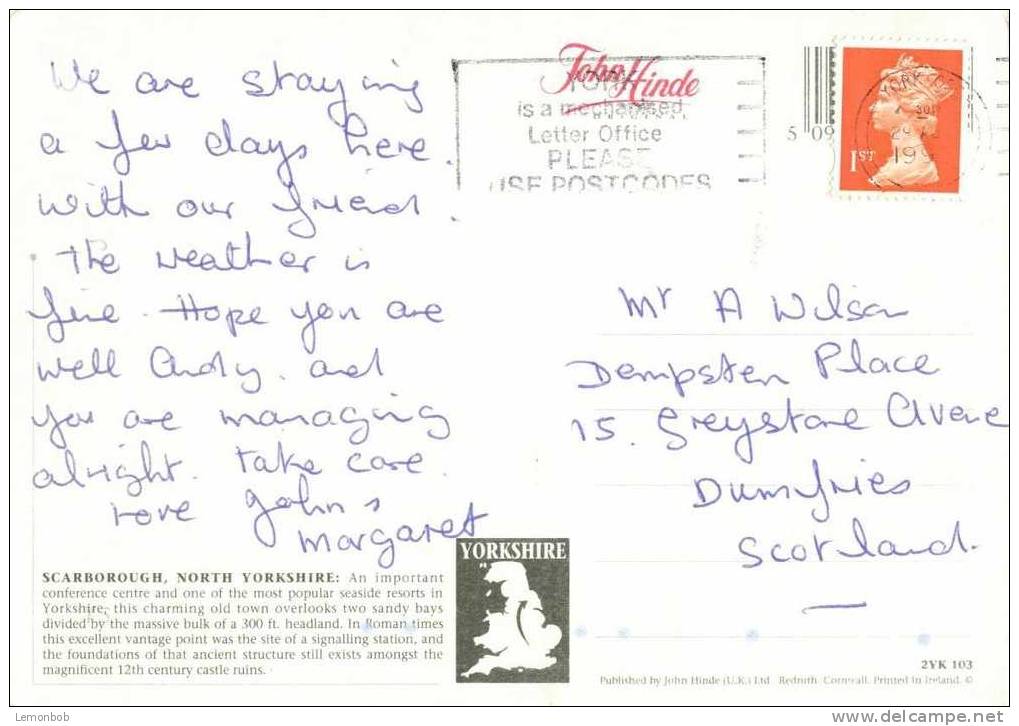 We are staying
a few days here.
with our friend.
The weather is
fine. Hope you are
well Andy. and
you are managing
alright. Take care.
Love John &
Margaret
John Hinde
YORK
is a mechanised
Letter Office
PLEASE
USE POSTCODES
5 09
1ST
YORK
199
Mr A Wilson
Dempsten Place
15. Greystone Avene
Dumfries
Scotland.
YORKSHIRE
SCARBOROUGH, NORTH YORKSHIRE: An important
conference centre and one of the most popular seaside resorts in
Yorkshire, this charming old town overlooks two sandy bays
divided by the massive bulk of a 300 ft. headland. In Roman times
this excellent vantage point was the site of a signalling station, and
the foundations of that ancient structure still exists amongst the
magnificent 12th century castle ruins.
2YK 103
Published by John Hinde (U.K.) Ltd. Redruth. Cornwall. Printed in Ireland. ©
Lemonbob
www.delcampe.net